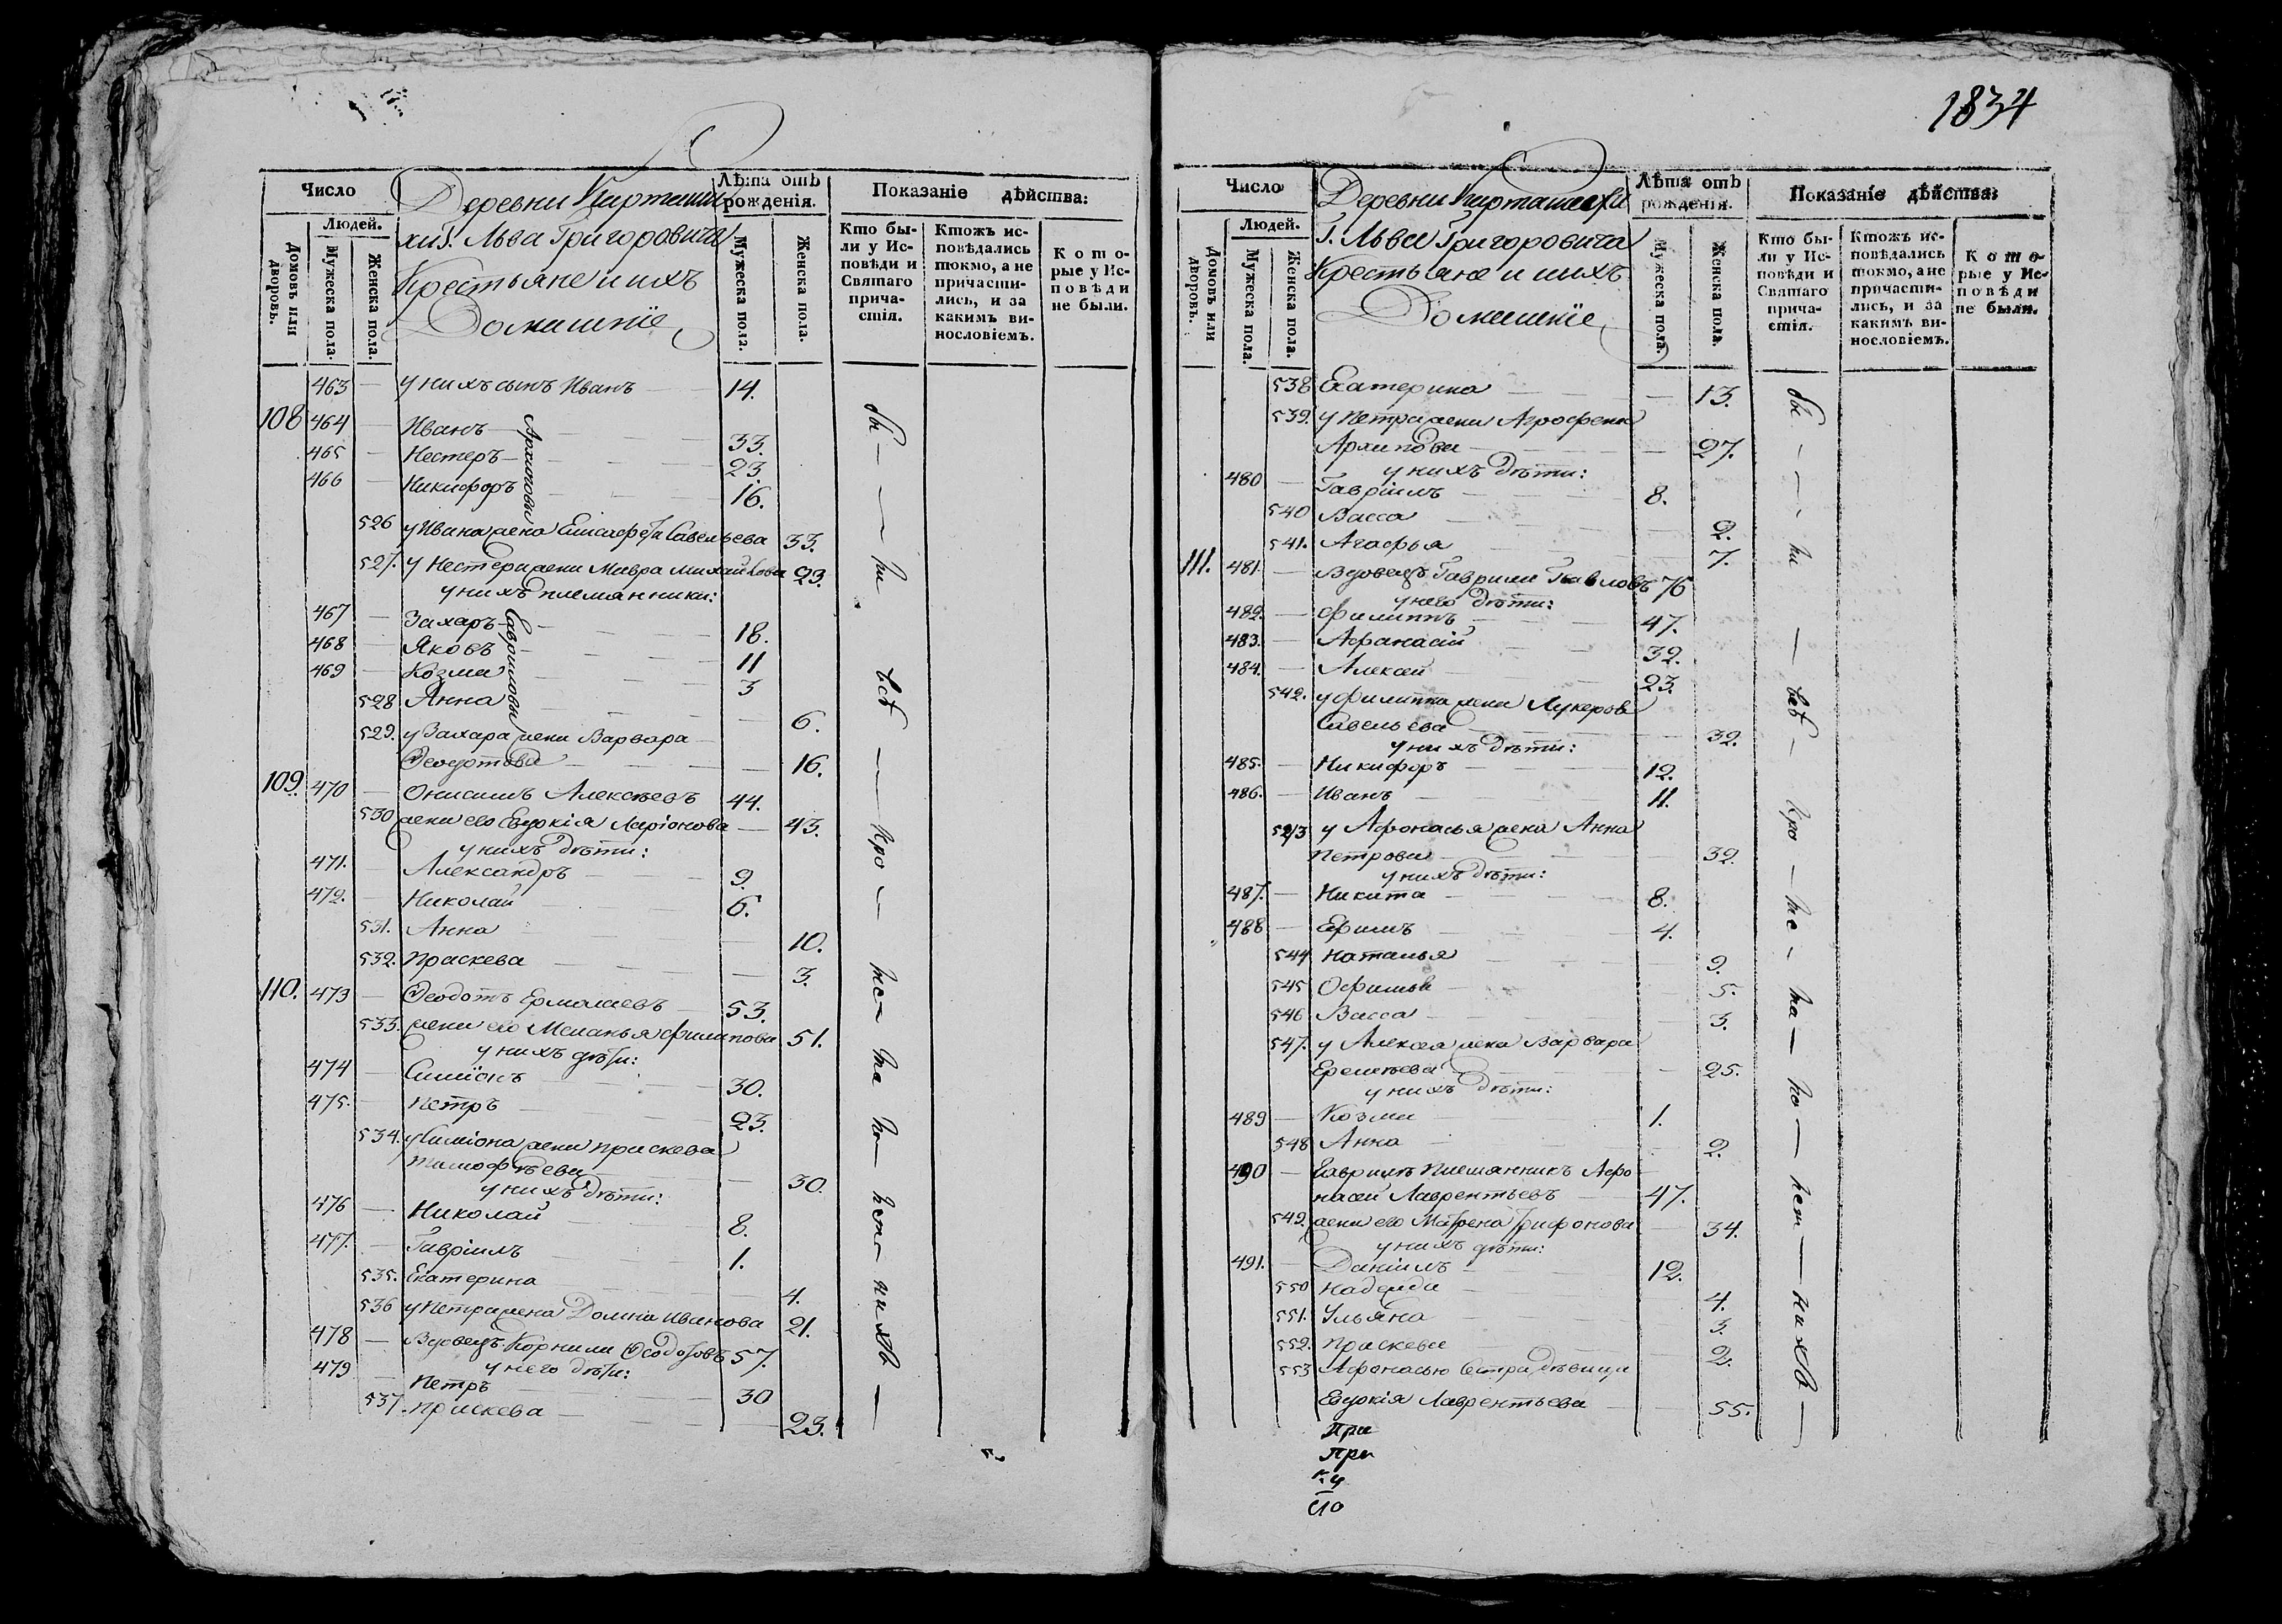 1834
Число
Людей.
Домовъ или дворовъ.
Мужеска пола.
Женска пола.
Деревни
Г. Льва Григоровича
Крестьяне и ихъ
Домашніе
Лѣта отъ рожденія.
Мужеска пола.
Женска пола.
Показаніе дѣйства:
Кто были у Исповѣди и Святаго причастія.
Ктожъ исповѣдались токмо, а не причастились, и за какимъ винословіемъ.
Которые у Исповѣди не были.
463 — у нихъ сынъ Иванъ — 14.
108 464 — Иванъ — Архиповы — 33.
465 — Нестеръ — 23.
466 — Никифоръ — 16.
526 у Ивана жена Елисафета Савельева 33.
527. у Нестера жена Мавра Михайлова 23.
у нихъ племянники:
467 — Захаръ — Гавриловы — 18.
468 — Яковъ — 11
469 — Козма — 3
528 Анна — 6.
529. у Захара жена Варвара
Ѳеодотова — 16.
109. 470 — Онисимъ Алексѣевъ 44.
530 жена его Евдокія Ларіонова — 43.
у нихъ дѣти:
471. Александръ — 9.
472. — Николай — 6.
531. Анна — 10.
532. Праскева — 3.
110. 473 — Ѳеодотъ Ермолаевъ — 53.
533. жена его Меланья Филипова 51.
у нихъ дѣти:
474 — Симіонъ — 30.
475. — Петръ — 23.
534. у Симіона жена Праскева
Тимофѣева — 30.
у нихъ дѣти:
476 — Николай — 8.
477. — Гавріилъ — 1.
535. Екатерина — 4.
536 у Петра жена Домна Иванова 21.
478 — Вдовецъ Корнили Ѳеодотовъ 57.
у него дѣти:
479 — Петръ — 30
537. Праскева — 23.
бы — — — ли всѣ — — про — не — на по — нет — нихъ —
Число
Людей.
Домовъ или дворовъ.
Мужеска пола.
Женска пола.
Деревни
Г. Льва Григоровича
Крестьяне и ихъ
Домашніе
Лѣта отъ рожденія.
Мужеска пола.
Женска пола.
Показаніе дѣйства:
Кто были у Исповѣди и Святаго причастія.
Ктожъ исповѣдались токмо, а не причастились, и за какимъ винословіемъ.
Которые у Исповѣди не были.
538 Екатерина — 13.
539. у Петра жена Агрофена
Архипова — 27.
у нихъ дѣти:
480 — Гавріилъ — 8.
540 Васса — 2.
541. Агафья — 7.
111. 481 — Вдовецъ Гаврила Павловъ 76
у него дѣти:
482. — Филиппъ — 47.
483. — Афанасій — 32.
484. — Алексей — 23.
542. у Филиппа жена Лукерья
Савельева — 32.
у нихъ дѣти:
485. — Никифоръ — 12.
486. — Иванъ — 11.
543 у Афонасья жена Анна
Петрова — 32.
у нихъ дѣти:
487. — Никита — 8.
488 — Ефимъ — 4.
544 Наталья — 9.
545 Офимья — 5.
546 Васса — 3.
547. у Алексея жена Варвара
Еремѣева — 25.
у нихъ дѣти:
489 — Козма — 1.
548 Анна — 2.
490 — Гаврилѣ племянникъ Афо
насей Лаврентьевъ — 47.
549. жена его Матрена Трифонова — 34.
у нихъ дѣти:
491. — Даніилъ — 12.
550 Надежда — 4.
551. Ульяна — 3.
552. Праскева — 2.
553 Афонасью сестра дѣвица
Евдокія Лаврентьева — 55.